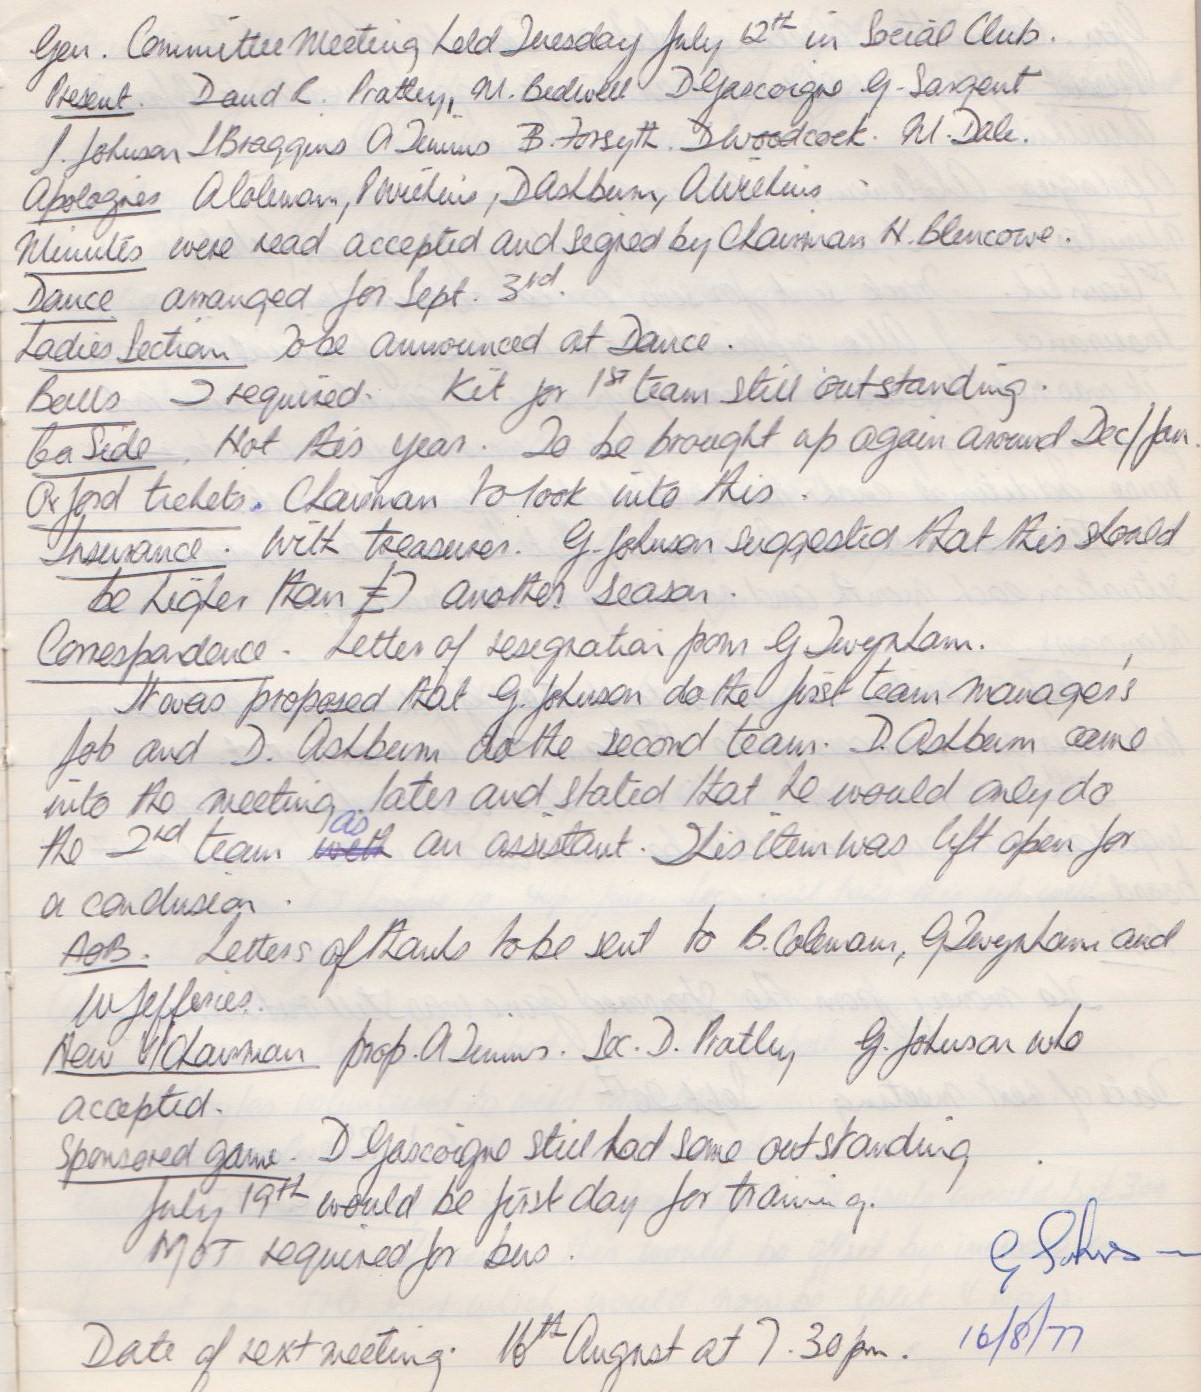 Gen. Committee Meeting held Tuesday July 12th in Social Club.
Present. D and R. Pratley, M. Bedwell D Gascoigne G. Sargent
J. Johnson J Braggins A Timms B. Forsyth. D Woodcock. M. Dale.
Apologies A Coleman, P Wilkins, D Ashburn, A Wilkins
Minutes were read accepted and signed by Chairman H. Blencowe.
Dance arranged for Sept. 3rd.
Ladies Section To be announced at Dance.
Balls 2 required. Kit for 1st team still outstanding.
Side. Not this year. To be brought up again around Dec/Jan.
Oxford tickets. Chairman to look into this.
Insurance. With treasurer. G. Johnson suggested that this should
be higher than £7 another season.
Correspondence - Letter of resignation from G Twynham.
It was proposed that G. Johnson do the first team manager's
job and D. Ashburn do the second team. D. Ashburn came
into the meeting later and stated that he would only do
the 2nd team with as an assistant. This item was left open for
a conclusion.
AOB. Letters of thanks to be sent to B. Coleman, G Twynham and
W Jefferies.
New V/Chairman prop. A Timms. Sec. D. Pratley G. Johnson who
accepted.
Sponsored game. D Gascoigne still had some outstanding
July 19th would be first day for training.
MOT required for bus.
G Johnson
Date of next meeting. 16th August at 7.30pm. 16/8/77